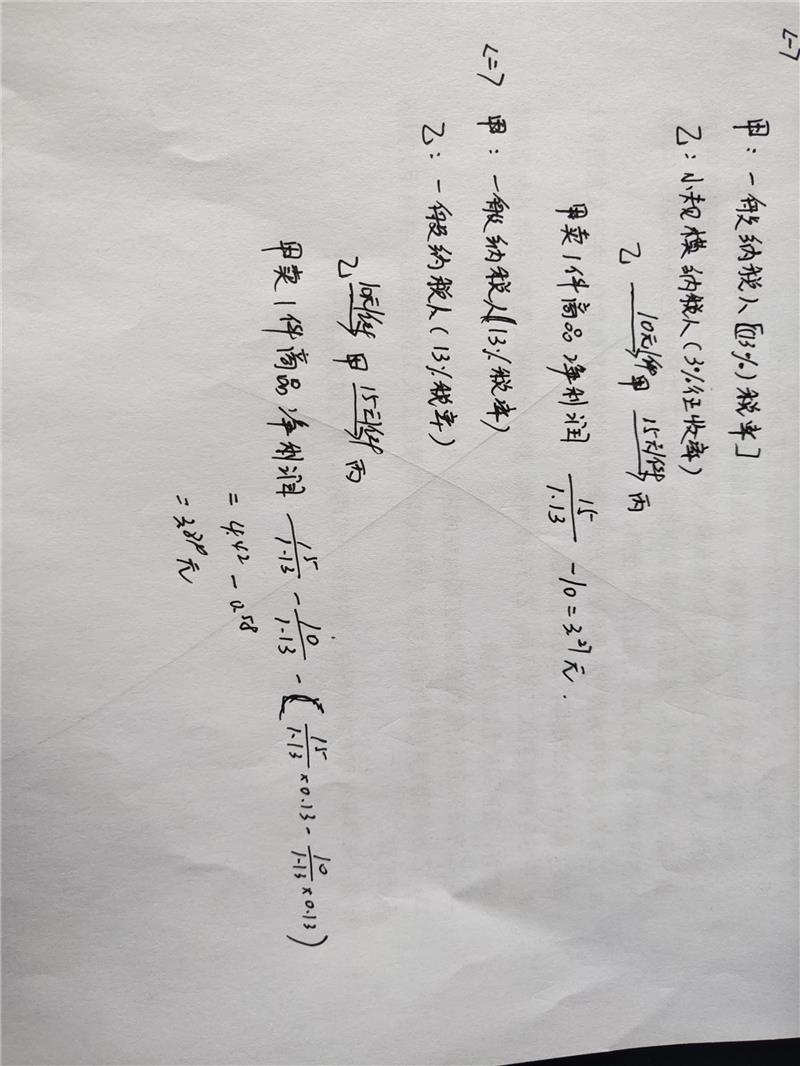 <一>
甲：一般纳税人[(13%)税率]
乙：小规模纳税人(3%征收率)
乙 10元/件→ 甲 15元/件→ 丙
甲卖1件商品净利润 15/1.13 - 10 = 3.27元.
<二> 甲：一般纳税人(13%税率)
乙：一般纳税人(13%税率)
乙 10元/件→ 甲 15元/件→ 丙
甲卖1件商品净利润 15/1.13 - 10/1.13 - (15/1.13 × 0.13 - 10/1.13 × 0.13)
= 4.42 - 0.58
= 3.84元